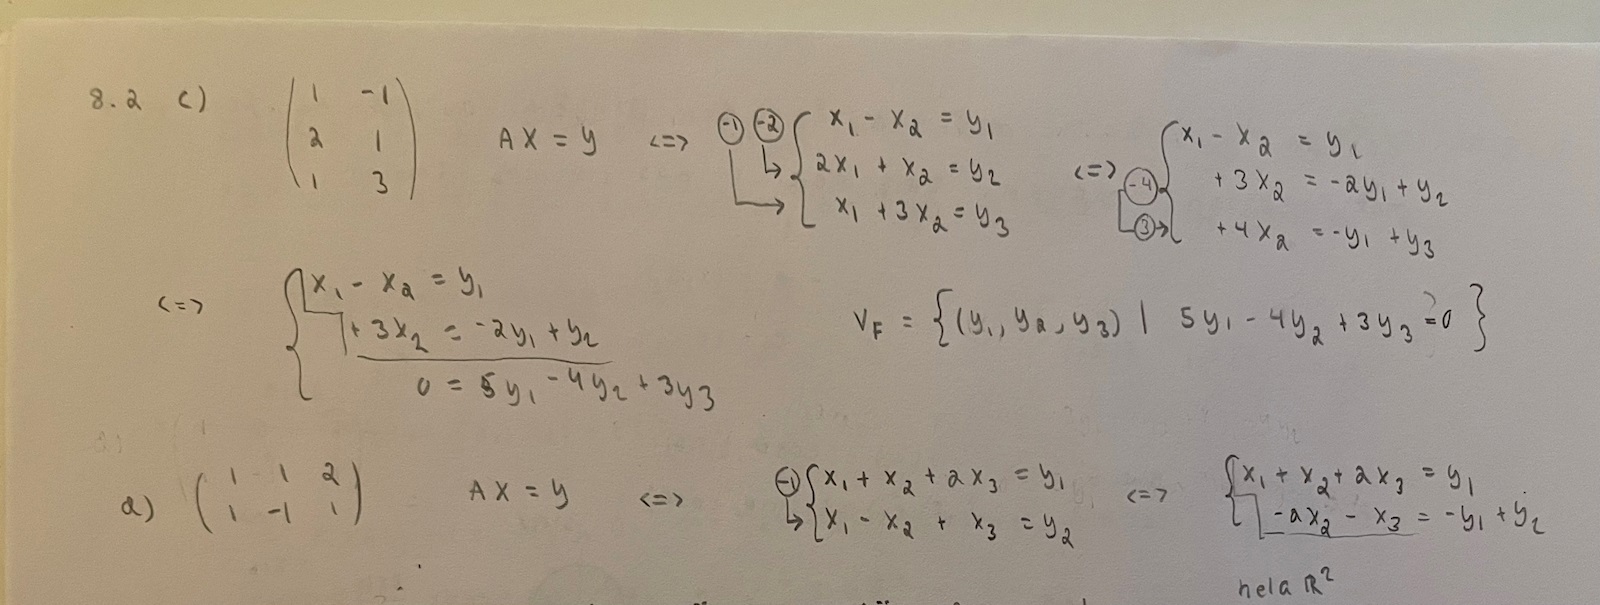 8.2 c) ( 1 -1 ; 2 1 ; 1 3 ) AX = y <=> (-1) (-2) { x₁ - x₂ = y₁ ; 2x₁ + x₂ = y₂ ; x₁ + 3x₂ = y₃ <=> (-4) (3) { x₁ - x₂ = y₁ ; + 3x₂ = -2y₁ + y₂ ; + 4x₂ = -y₁ + y₃
<=> { x₁ - x₂ = y₁ ; + 3x₂ = -2y₁ + y₂ ; 0 = 5y₁ - 4y₂ + 3y₃ V_F = {(y₁, y₂, y₃) | 5y₁ - 4y₂ + 3y₃ = 0}
d) ( 1 1 2 ; 1 -1 1 ) AX = y <=> (-1) { x₁ + x₂ + 2x₃ = y₁ ; x₁ - x₂ + x₃ = y₂ <=> { x₁ + x₂ + 2x₃ = y₁ ; -2x₂ - x₃ = -y₁ + y₂
hela ℝ²